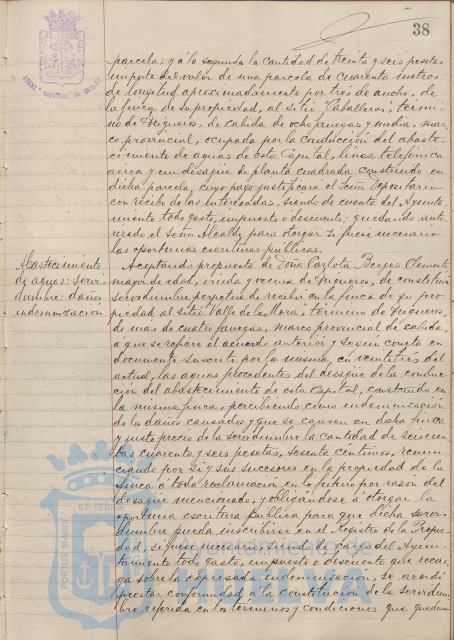 38
parcela; y á la segunda la cantidad de treinta y seis pesetas
importe del valor de una parcela de cuarenta metros
de longitud aproximadamente por tres de ancho, de
la finca de su propiedad, al sitio "Caballeros", térmi-
no de Trigueros, de cabida de ocho fanegas y media, mar-
co provincial, ocupada por la conducción del abaste-
cimiento de aguas de esta Capital, línea telefónica
aerea y un desagüe de planta cuadrada construido en
dicha parcela; cuyo pago justificará el Señor Depositario
con recibo de las interesadas, siendo de cuenta del Ayunta-
miento todo gasto, impuesto o descuento; quedando auto-
rizado el Señor Alcalde para otorgar si fuese necesario
las oportunas escrituras públicas.
Abastecimiento
de aguas: Servi-
dumbre: daños
indemnización
Aceptando propuesta de Doña Carlota Berges Clemente
mayor de edad, viuda y vecina de Trigueros, de constituir
servidumbre perpetua de recibir en la finca de su pro-
piedad al sitio Valle de la Mora, término de Trigueros,
de mas de cuatro fanegas, marco provincial de cabida,
a que se refiere el acuerdo anterior y según consta en
documento suscrito por la misma, en veintitres del
actual, las aguas procedentes del desagüe de la conduc-
ción del abastecimiento de esta Capital, construido en
la misma finca, percibiendo como indemnización
de los daños causados y que se causen en dicha finca
y justo precio de la servidumbre la cantidad de seiscien-
tas cuarenta y seis pesetas, sesenta centimos, renun-
ciando por sí y sus sucesores en la propiedad de la
finca a toda reclamación en lo futuro por razon del
desagüe mencionado, y obligándose á otorgar la
oportuna escritura pública para que dicha servi-
dumbre pueda inscribirse en el Registro de la Propie-
dad, si fuese necesario, siendo de cargo del Ayun-
tamiento todo gasto, impuesto o descuento que recai-
ga sobre la expresada indemnización, se acordó
prestar conformidad a la constitución de la servidum-
bre referida en los términos y condiciones que quedan
PORTUS MARIS
ET TERRAE
Ayuntamiento de
HUELVA